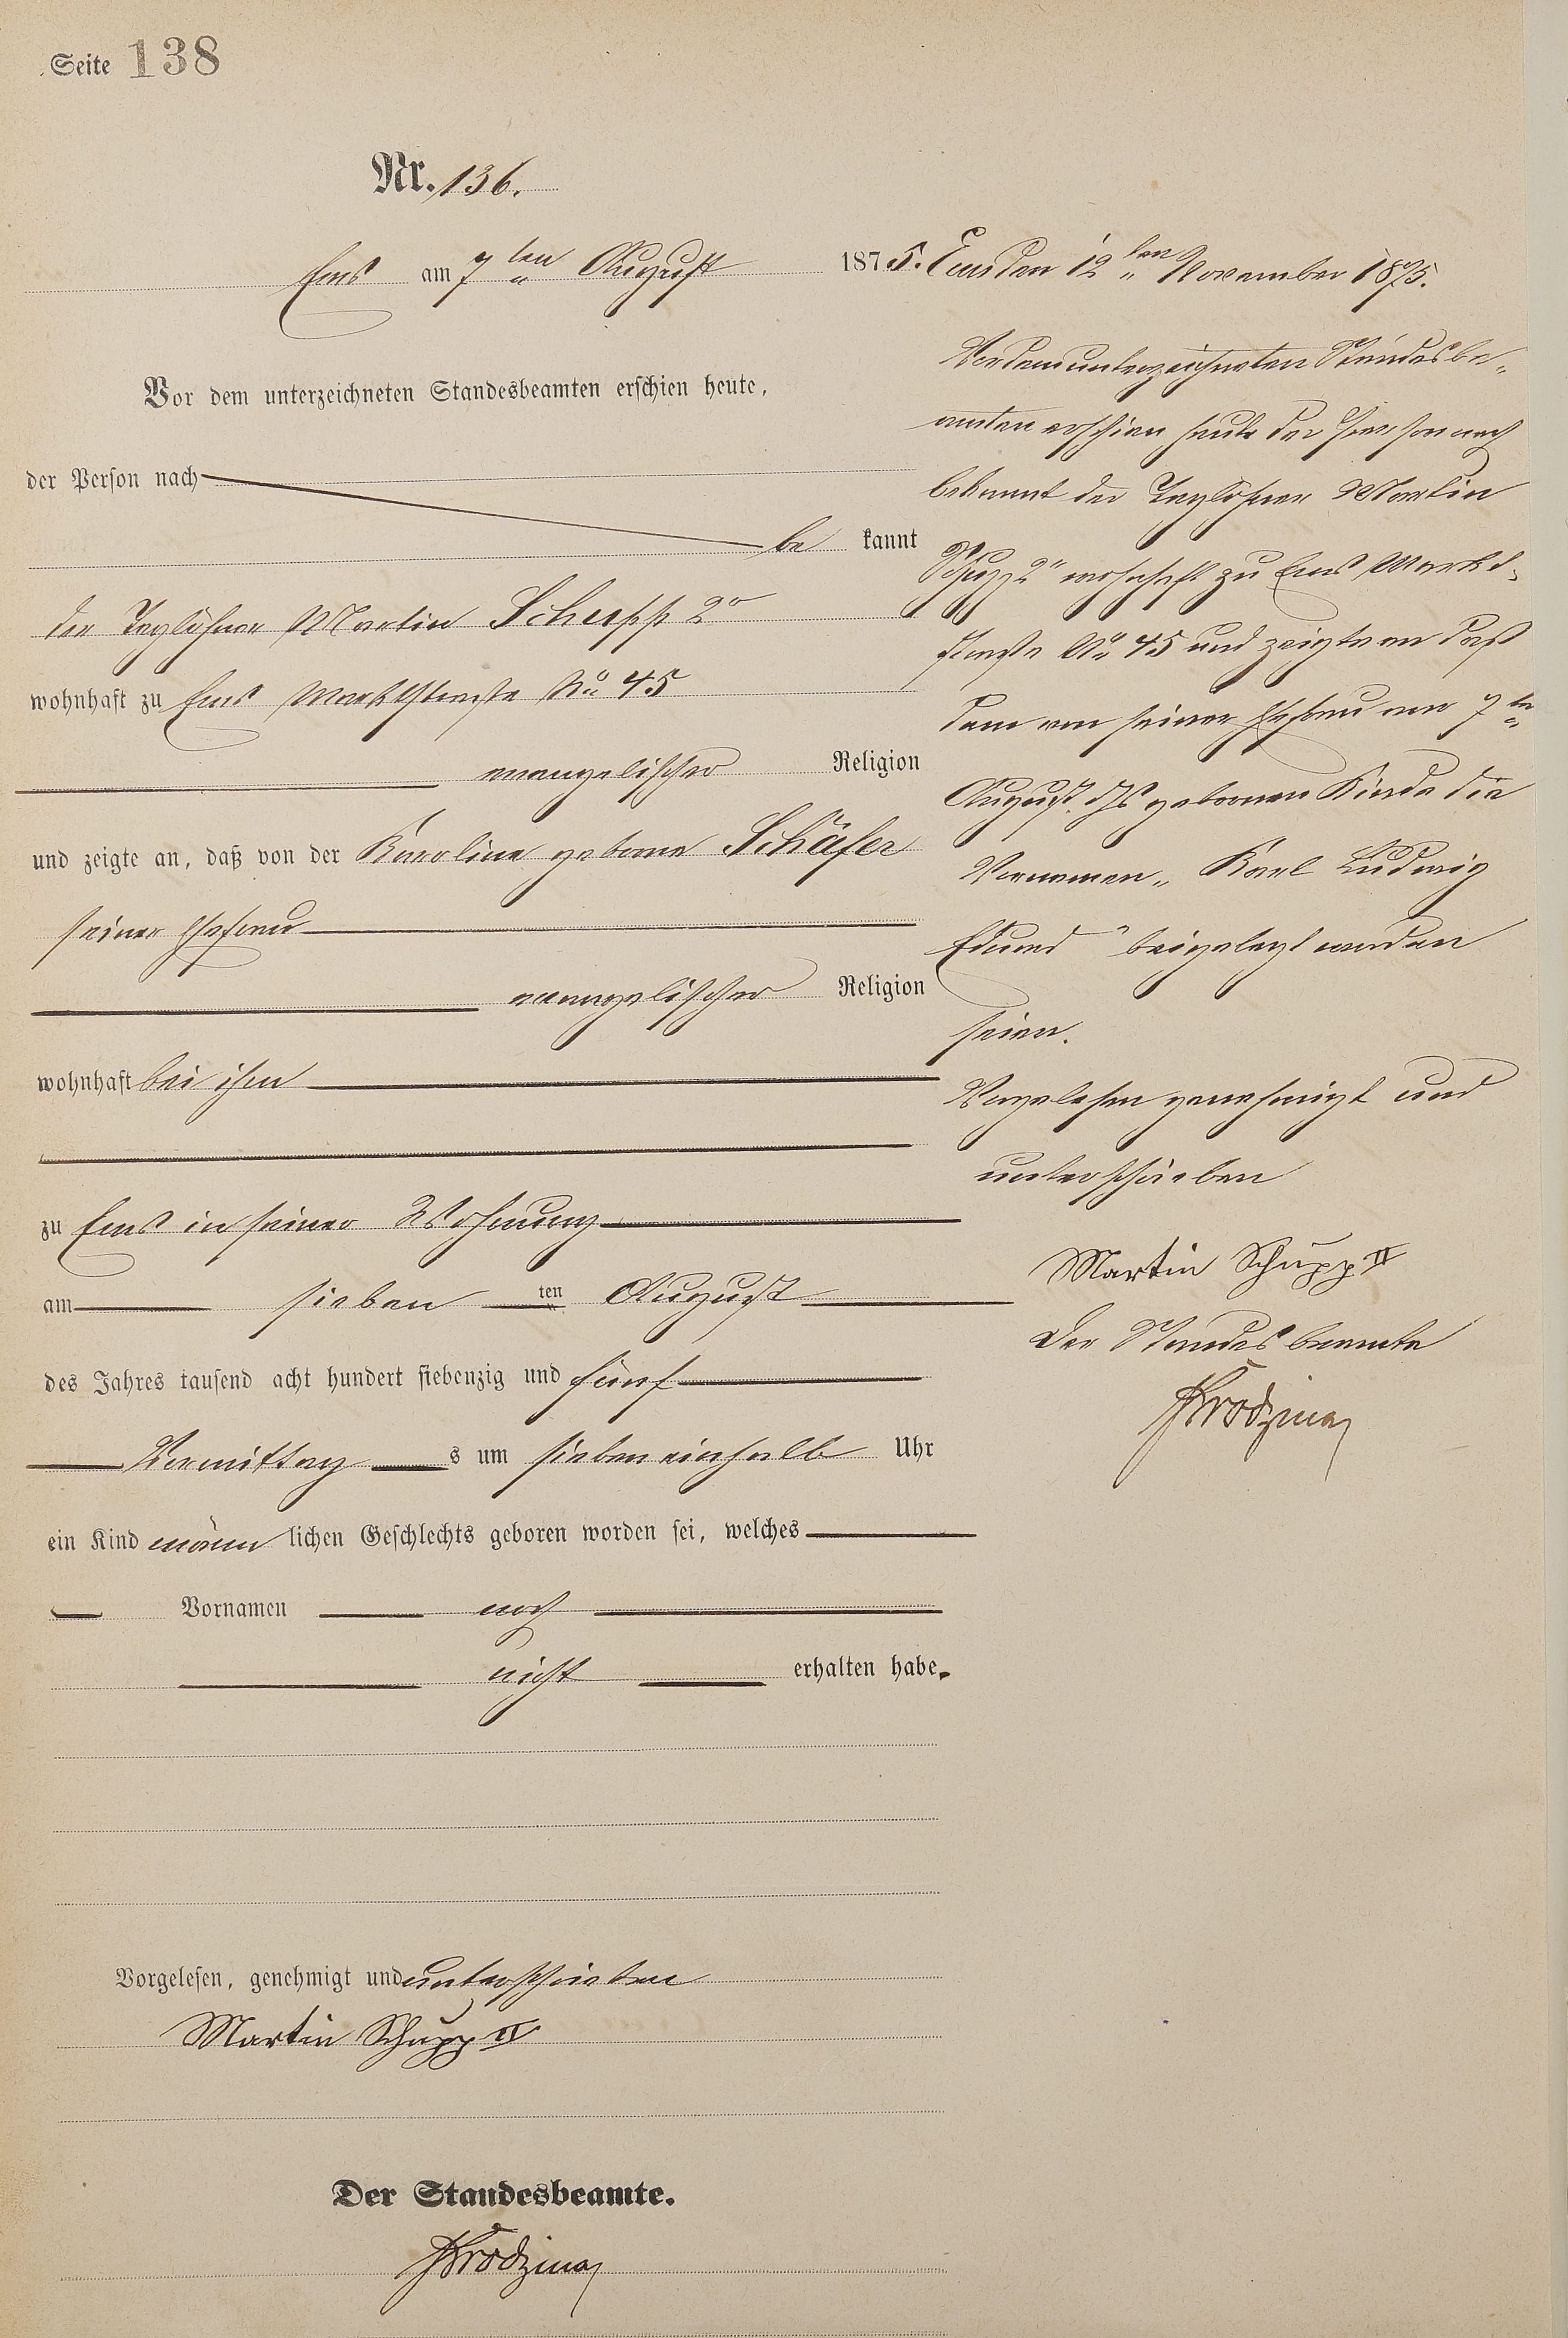 Seite 138
Nr. 136.
Ems am 7ten August 1875.
Vor dem unterzeichneten Standesbeamten erschien heute,
der Person nach
be kannt
der Taglöhner Martin Schupp 2r
wohnhaft zu Ems Marktstraße No 45
evangelischer Religion
und zeigte an, daß von der Karoline geborne Schäfer
seiner Ehefrau
evangelischer Religion
wohnhaft bei ihm
zu Ems in seiner Wohnung
am sieben ten August
des Jahres tausend acht hundert siebenzig und fünf
Vormittag s um sieben einhalb Uhr
ein Kind männ lichen Geschlechts geboren worden sei, welches
Vornamen noch
nicht erhalten habe.
Vorgelesen, genehmigt und unterschrieben
Martin Schupp II
Der Standesbeamte.
Ems den 12ten November 1875.
Vor dem unterzeichneten Standesbe-
amten erschien heute der Person nach
bekannt der Taglöhner Martin
Schupp 2r wohnhaft zu Ems Markt-
straße No 45 und zeigte an daß
dem von seiner Ehefrau am 7ten
August ds Js gebornen Kinde die
Vornamen „Karl Ludwig
Eduard“ beigelegt worden
seien.
Vorgelesen genehmigt und
unterschrieben
Martin Schupp II
Der Standesbeamte